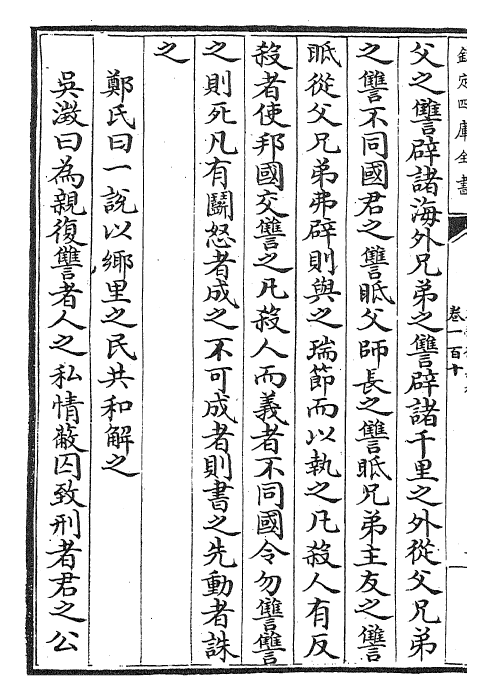 欽定四庫全書
卷一百十
父之讐辟諸海外兄弟之讐辟諸千里之外從父兄弟
之讐不同國君之讐眡父師長之讐眡兄弟主友之讐
眡從父兄弟弗辟則與之瑞節而以執之凡殺人有反
殺者使邦國交讐之凡殺人而義者不同國令勿讐讐
之則死凡有鬭怒者成之不可成者則書之先動者誅
之
鄭氏曰一說以鄉里之民共和解之
吳澂曰為親復讐者人之私情蔽囚致刑者君之公